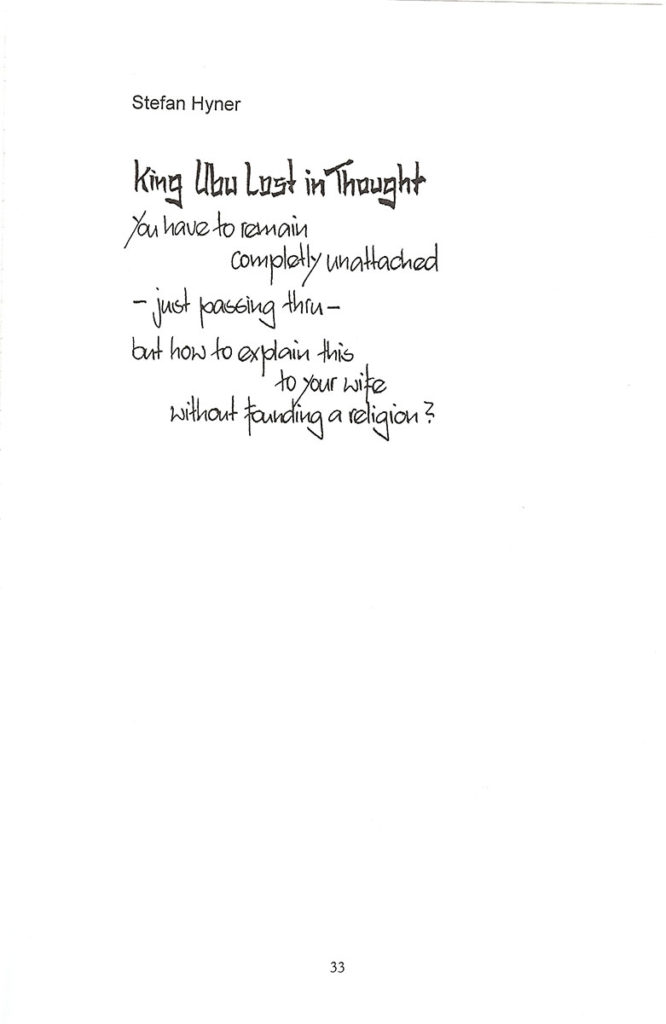 Stefan Hyner
King Ubu Lost in Thought
You have to remain
completly unattached
– just passing thru –
but how to explain this
to your wife
without founding a religion?
33